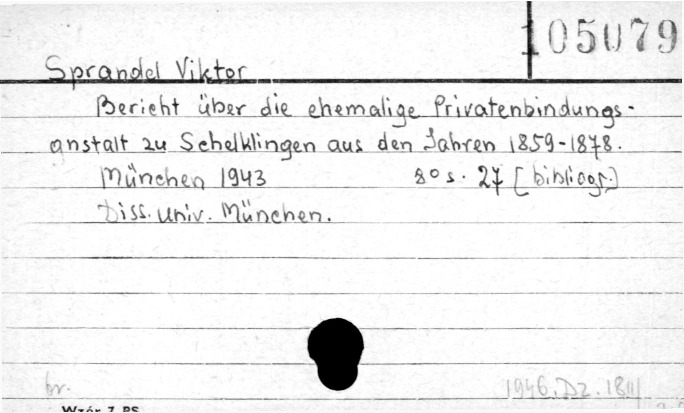 105079
Sprandel Viktor
Bericht über die ehemalige Privatenbindungs-
anstalt zu Schelklingen aus den Jahren 1859-1878.
München 1943 8° s. 27 [bibliogr.]
Diss. univ. München.
br. 1946. Dz. 18
Wzór 7 PS